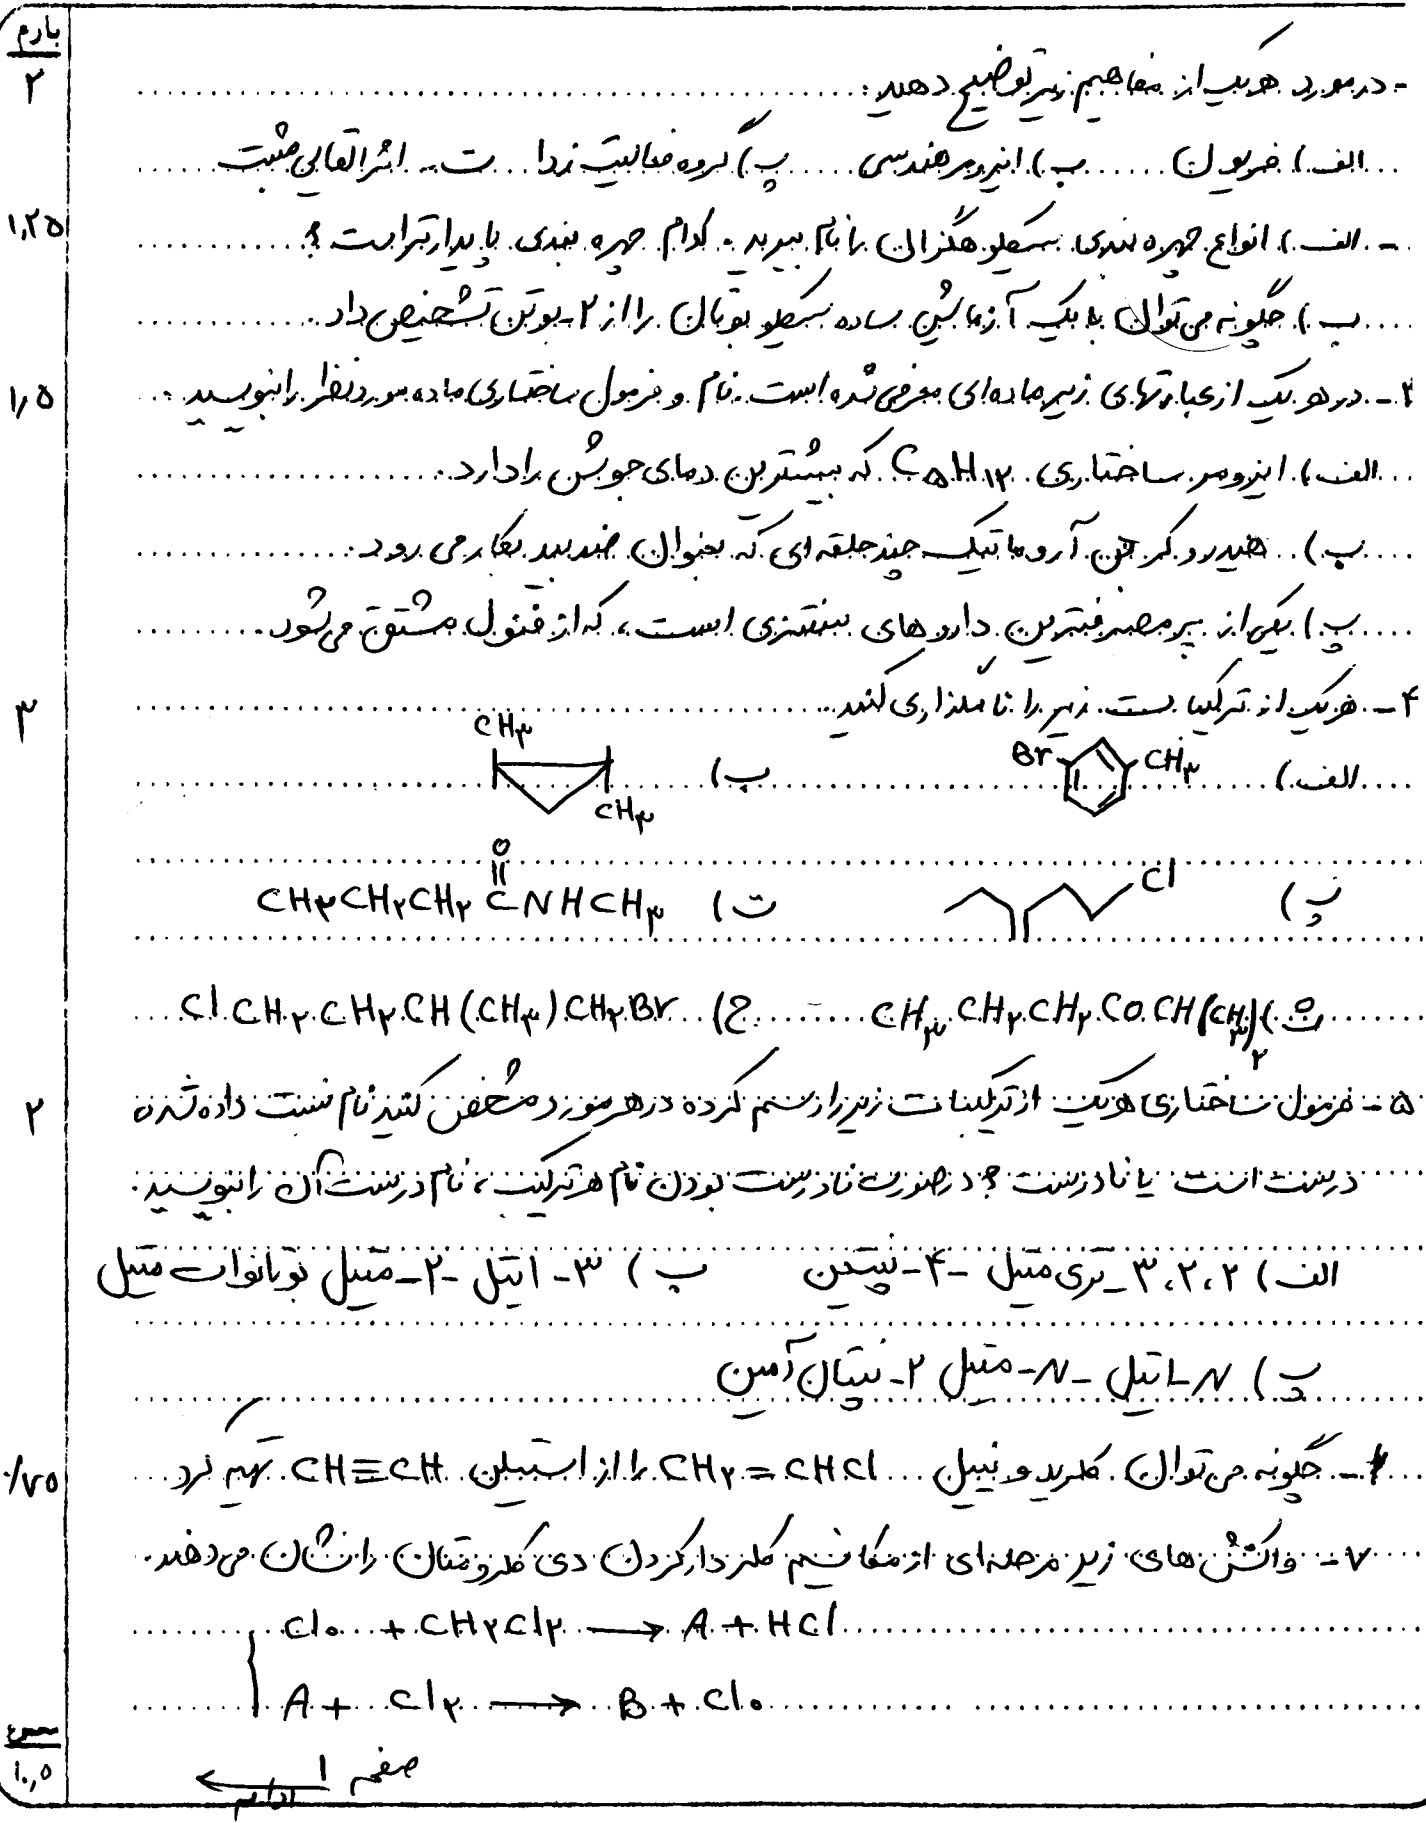 بارم
- در مورد هر یک از مفاهیم زیر توضیح دهید:
۲
الف) فریون ب) ایزومر هندسی پ) گروه فعالیت زدا ت- اثر القایی مثبت
۱,۲۵
- الف) انواع چهره بندی سیکلو هگزان را نام ببرید. کدام چهره بندی پایدارتر است؟
ب) چگونه می توان با یک آزمایش ساده سیکلو بوتان را از ۲-بوتن تشخیص داد.
۱,۵
۳- در هر یک از عبارتهای زیر ماده ای معرفی شده است. نام و فرمول ساختاری ماده مورد نظر را بنویسید.
الف) ایزومر ساختاری C۵H۱۲ که بیشترین دمای جوش را دارد.
ب) هیدروکربن آروماتیک چند حلقه ای که بعنوان ضد بید بکار می رود.
پ) یکی از پر مصرفترین داروهای سنتزی است، که از فنول مشتق می شود.
۳
۴- هر یک از ترکیبات زیر را نامگذاری کنید.
الف) Br CH۳ ب) CH۳ CH۳
پ) Cl ت) CH۳CH۲CH۲ C NHCH۳
O
ث) CH۳CH۲CH۲COCH(CH۳)۲ ج) ClCH۲CH۲CH(CH۳)CH۲Br
۲
۵- فرمول ساختاری هر یک از ترکیبات زیر را رسم کرده در هر مورد مشخص کنید نام نسبت داده شده
درست است یا نادرست؟ در صورت نادرست بودن نام هر ترکیب، نام درست آن را بنویسید.
الف) ۲،۲،۳-تری متیل -۴-پنتین ب) ۳- اتیل -۲- متیل بوتانوات متیل
پ) N-اتیل -N- متیل ۲- پنتان آمین
۰/۷۵
۶- چگونه می توان کلرید وینیل CH۲=CHCl را از استیلن CH≡CH تهیه کرد
۷- واکنش های زیر مرحله ای از مکانیسم کلردار کردن دی کلرومتان را نشان می دهند.
Cl• + CH۲Cl۲ → A + HCl
A + Cl۲ → B + Cl•
جمع
۱۰,۵
صفحه ۱
ادامه